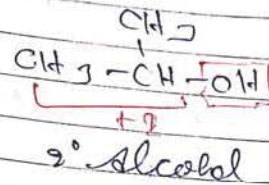 CH3
CH3-CH-OH
+I
2° Alcohol